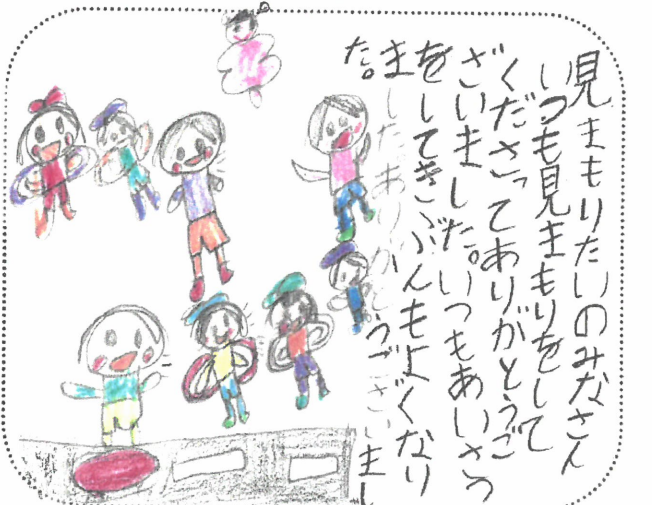 見まもりたいのみなさん
いつも見まもりをして
くださってありがとうご
ざいました。いつもあいさつ
をしてきぶんもよくなり
ましたありがとうございまし
た。